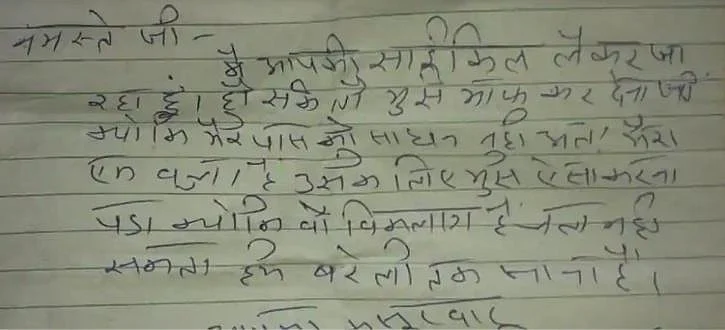 नमस्ते जी -
मै आपकी साईकिल लेकर जा
रहा हूं। हो सके तो मुझे माफ कर देना जी
क्योकि मेरे पास कोई साधन नही अतः मेरा
एक बच्चा है उसके लिए मुझे ऐसा करना
पडा क्योकि वो विकलांग है चल नही
सकता हमे बरेली तक जाना है।
आपका कसूरवार